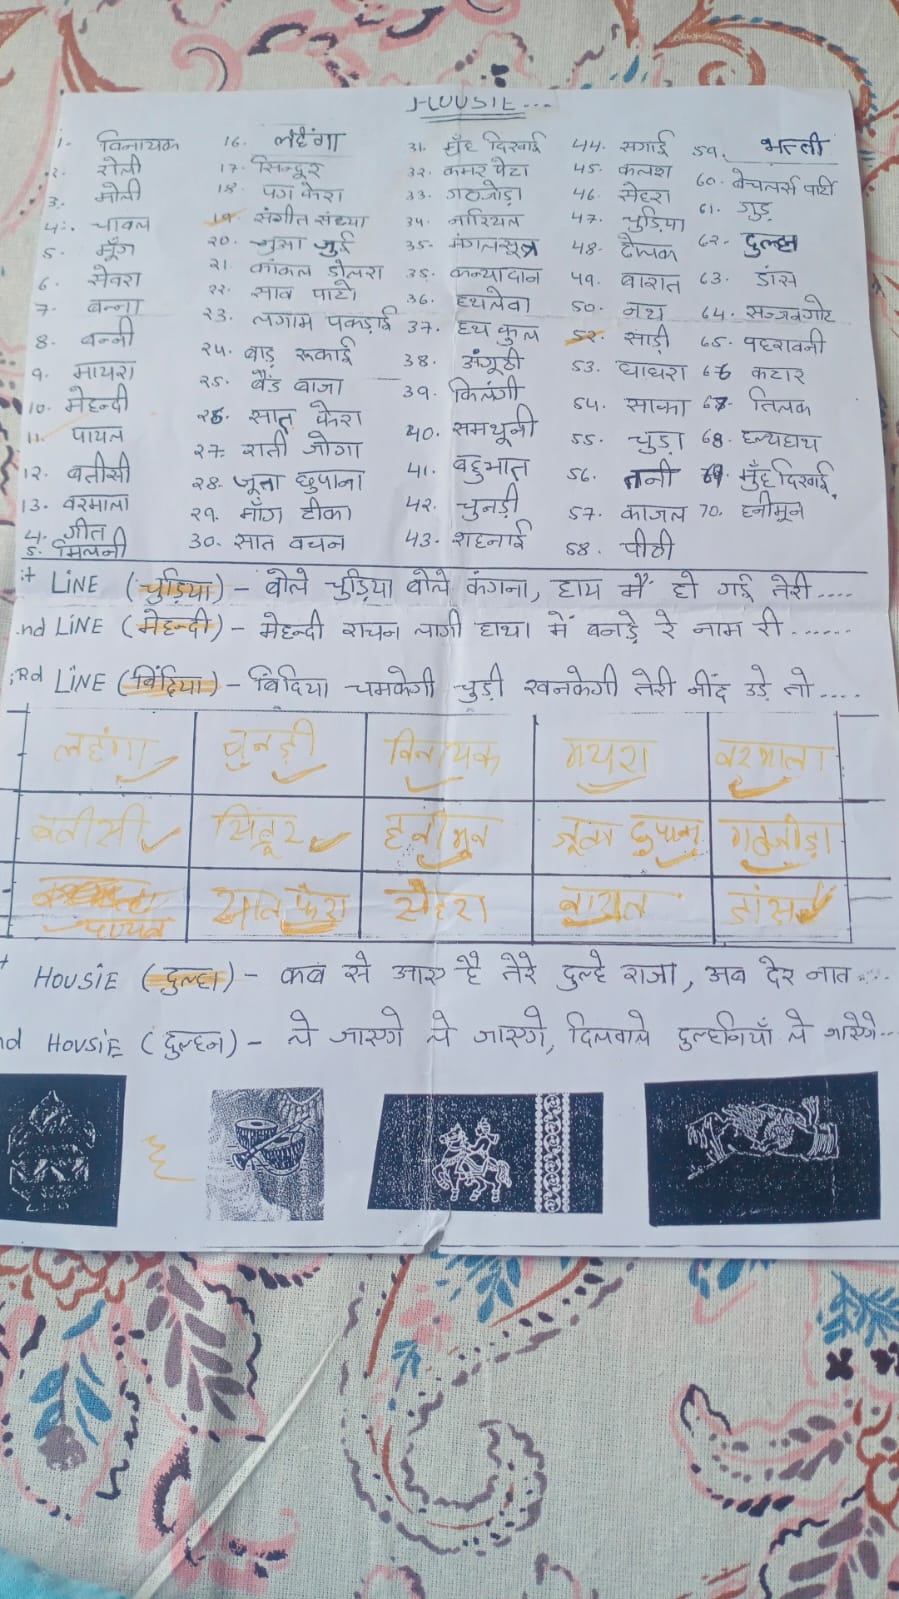 HOUSIE...
1. विनायक
2. रोली
3. मोली
4. चावल
5. मूँग
6. सेवरा
7. बन्ना
8. बन्नी
9. मायरा
10. मेहन्दी
11. पायल
12. बतीसी
13. वरमाला
4. गीत
5. मिलनी
16. लहंगा
17. सिन्दूर
18. पग फेरा
19. संगीत संध्या
20. जुआ जुई
21. कांकल डोलरा
22. साव पाटो
23. लगाम पकड़ाई
24. बाड़ रूकाई
25. बैंड बाजा
26. सात फेरा
27. राती जोगा
28. जूता छुपाना
29. माँग टीका
30. सात वचन
31. मुँह दिखाई
32. कमर पेटा
33. गठजोड़ा
34. नारियल
35. मंगलसूत्र
35. कन्यादान
36. हथलेवा
37. हथ कुल
38. अंगूठी
39. किलंगी
40. समथूनी
41. बहुभात
42. चुनड़ी
43. शहनाई
44. सगाई
45. कलश
46. सेहरा
47. चुड़िया
48. ढोलक
49. बारात
50. नथ
52. साड़ी
53. घाघरा
54. साफा
55. चुड़ा
56. तनी
57. काजल
58. पीठी
59. भत्ती
60. बेचलर्स पार्टी
61. गुड़
62. दुल्हन
63. डांस
64. सज्जनगोट
65. पहरावनी
66 कटार
67. तिलक
68. हल्दहाथ
69. मुँह दिखाई
70. हनीमून
st LINE (चुड़िया) - बोले चुड़िया बोले कंगना, हाय मैं हो गई तेरी....
nd LINE (मेहन्दी) - मेहन्दी राचन लागी हाथा में बनड़े रे नाम री......
3Rd LINE (बिंदिया) - बिंदिया चमकेगी चुड़ी खनकेगी तेरी नींद उड़े तो....
लहंगा चुनड़ी विनायक मायरा वरमाला
बतीसी सिंदूर हनीमून जूता छुपाना गठजोड़ा
पायल सात फेरा सेहरा बारात डांस
HOUSIE (दुल्हा) - कब से आए है तेरे दुल्हे राजा, अब देर नात....
nd HOUSIE (दुल्हन) - ले जाएगे ले जाएगे, दिलवाले दुल्हनियाँ ले जाएेगे..